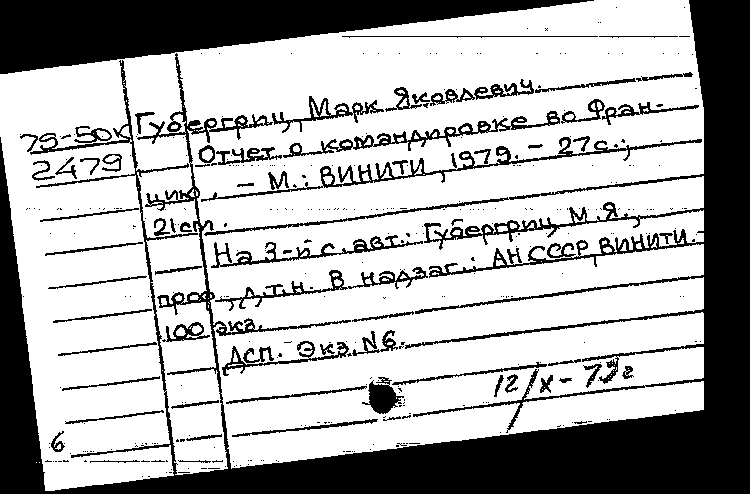 79-50К Губергриц, Марк Яковлевич.
2479 Отчет о командировке во Фран-
цию. - М.: ВИНИТИ, 1979. - 27с.;
21см.
На 3-й с. авт.: Губергриц М.Я.,
проф., д.т.н. В надзаг.: АН СССР, ВИНИТИ. -
100 экз.
ДСП. Экз. N6.
12/X-79г
6